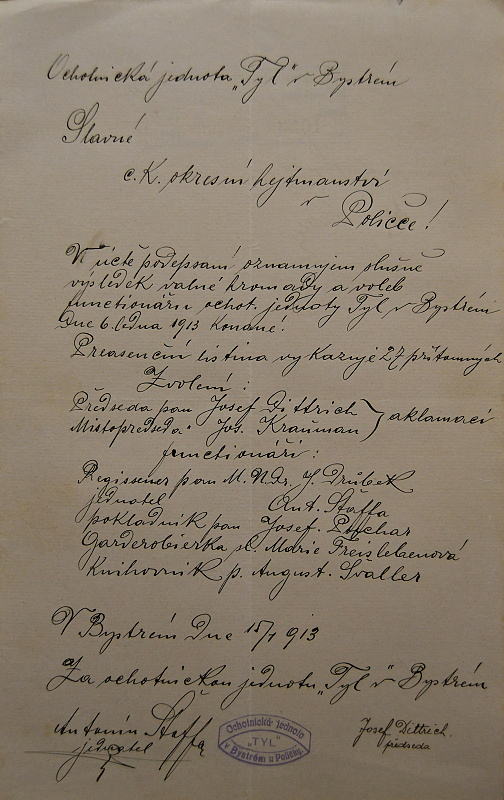 Ochotnická jednota „Tyl“ v Bystrém
Slavné
c. K. okresní hejtmanství
v
Poličce!
V úctě podepsaní oznamujem slušně
výsledek valné hromady a voleb
functionářů ochot. jednoty Tyl v Bystrém
Dne 6. ledna 1913 konané!
Preasenční listina vykazuje 27 přítomných
Zvoleni:
Předseda pan Josef Dittrich
Místopředseda " Jos. Krauman } aklamací
functionáři:
Regisseur pan M.U.Dr. J. Drůbek
jednatel Ant. Štaffa
pokladník pan Josef Puchar
Garderobierka sl. Marie
Knihovník p. August. Švaller
V Bystrém Dne 15/1 913
Za ochotnickou jednotu „Tyl“ v Bystrém
Antonín Štaffa
jednatel
Ochotnická jednota
„TYL“
v Bystrém u Poličky.
Josef Dittrich.
předseda